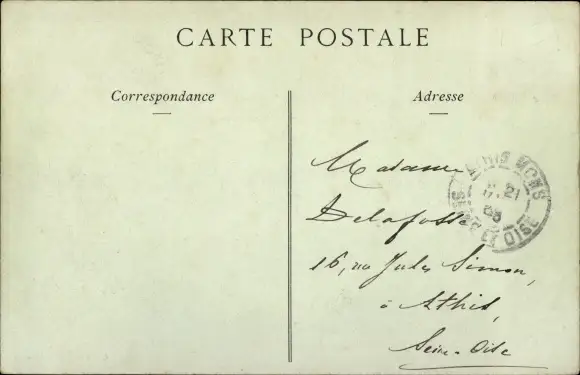 CARTE POSTALE
Correspondance
Adresse
Madame
Delafosse
16, rue Jules Simon,
à Athis,
Seine-Oise
ATHIS MONS
21
SEINE ET OISE